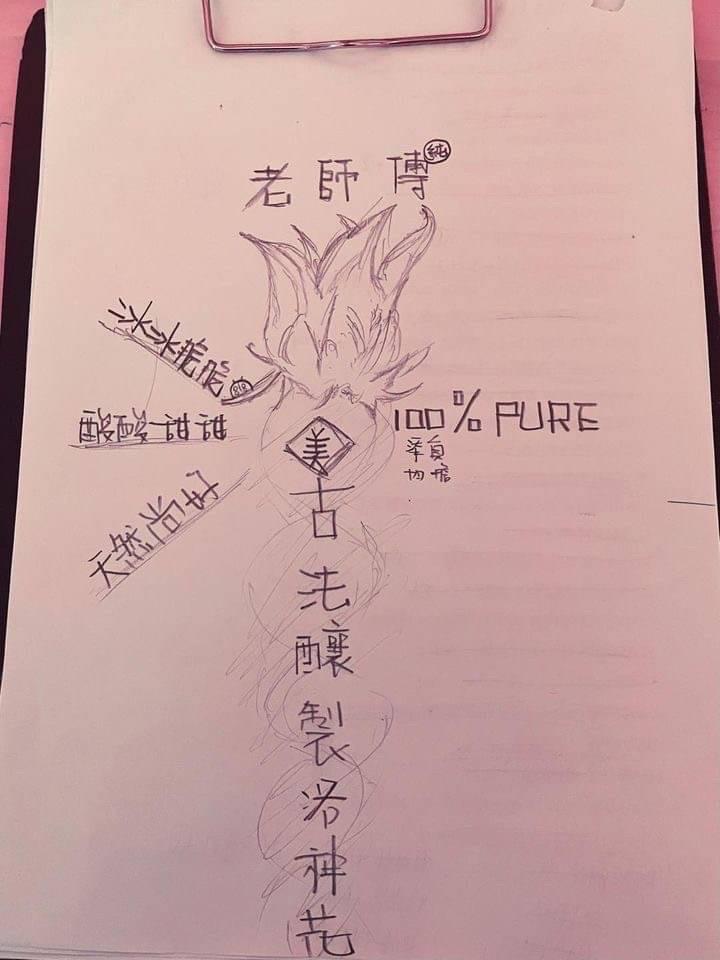 老師傅
純
冰冰脆脆
酸酸甜甜
天然尚好
100% PURE
美
古法釀製洛神花